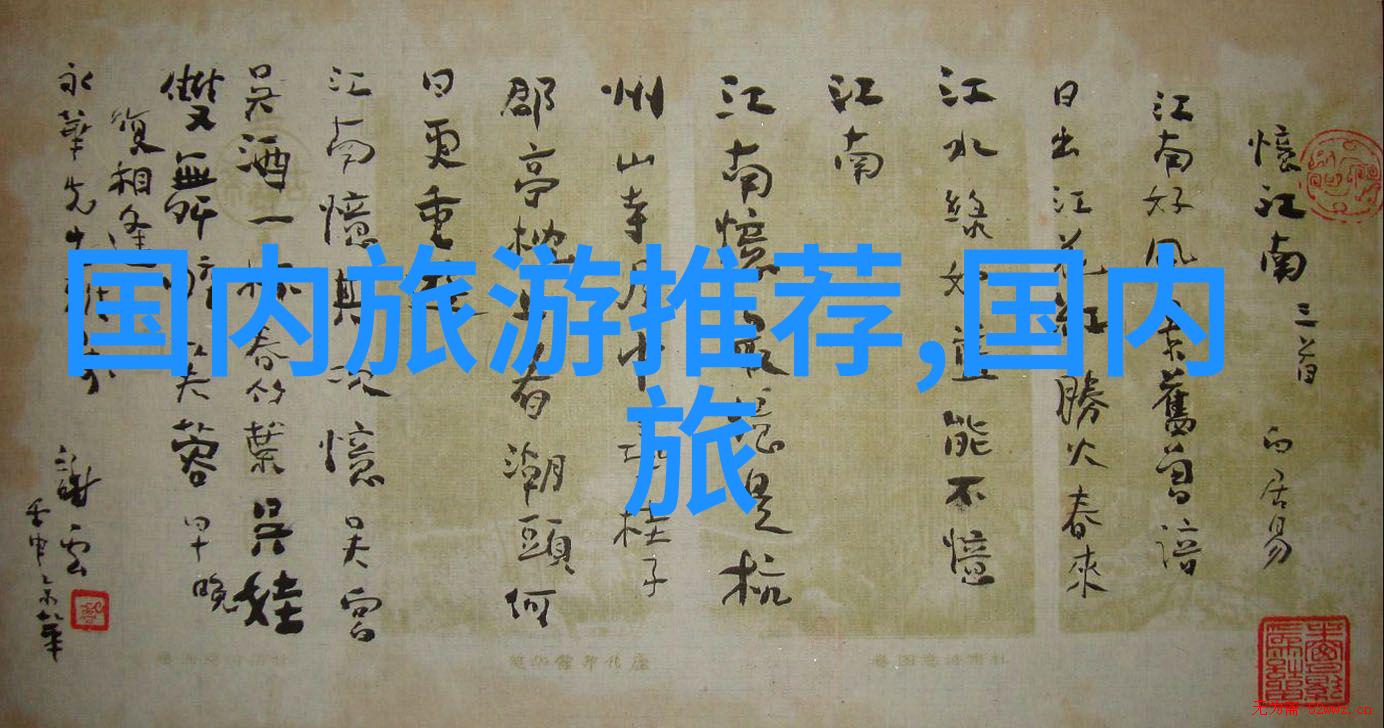 国内旅游推荐,国内
旅
憶江南 三首 白居易
江南好風景舊曾諳
日出江花紅勝火春來
江水綠如藍能不憶
江南
江南憶最憶是杭
州山寺月中尋桂子
郡亭枕上看潮頭何
日更重遊
江南憶其次憶吳宮
吳酒一杯春竹葉吳娃
雙舞醉芙蓉早晚
復相逢
永華先生
謝雲
无为斋 52wwz.cn